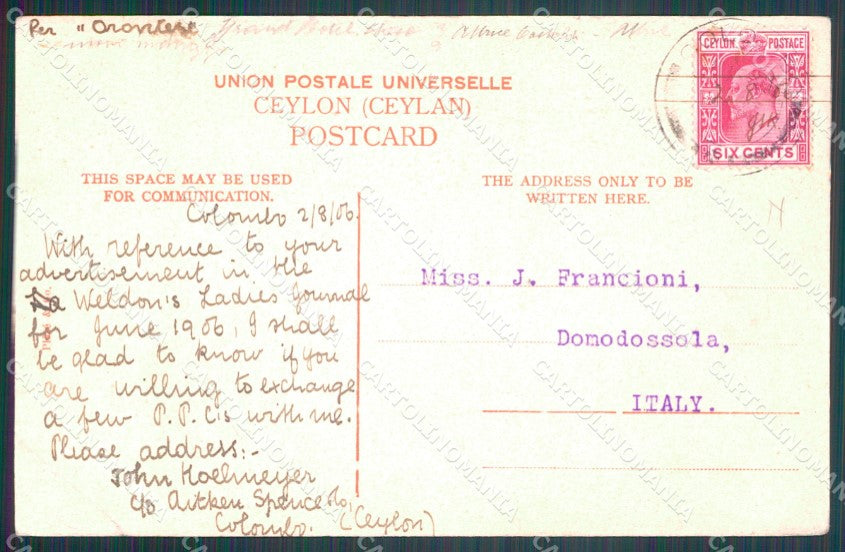 Per "Orontes"
Grand Hotel
UNION POSTALE UNIVERSELLE
CEYLON (CEYLAN)
POSTCARD
CEYLON POSTAGE
SIX CENTS
THIS SPACE MAY BE USED
FOR COMMUNICATION.
THE ADDRESS ONLY TO BE
WRITTEN HERE.
Colombo 2/8/06.
With reference to your
advertisement in the
Weldon's Ladies Journal
for June 1906, I shall
be glad to know if you
are willing to exchange
a few P.P.C's with me.
Please address:-
John Koelmeyer
c/o Aitken Spence & Co,
Colombo. (Ceylon)
Miss. J. Francioni,
Domodossola,
ITALY.
CARTOLINOMANIA